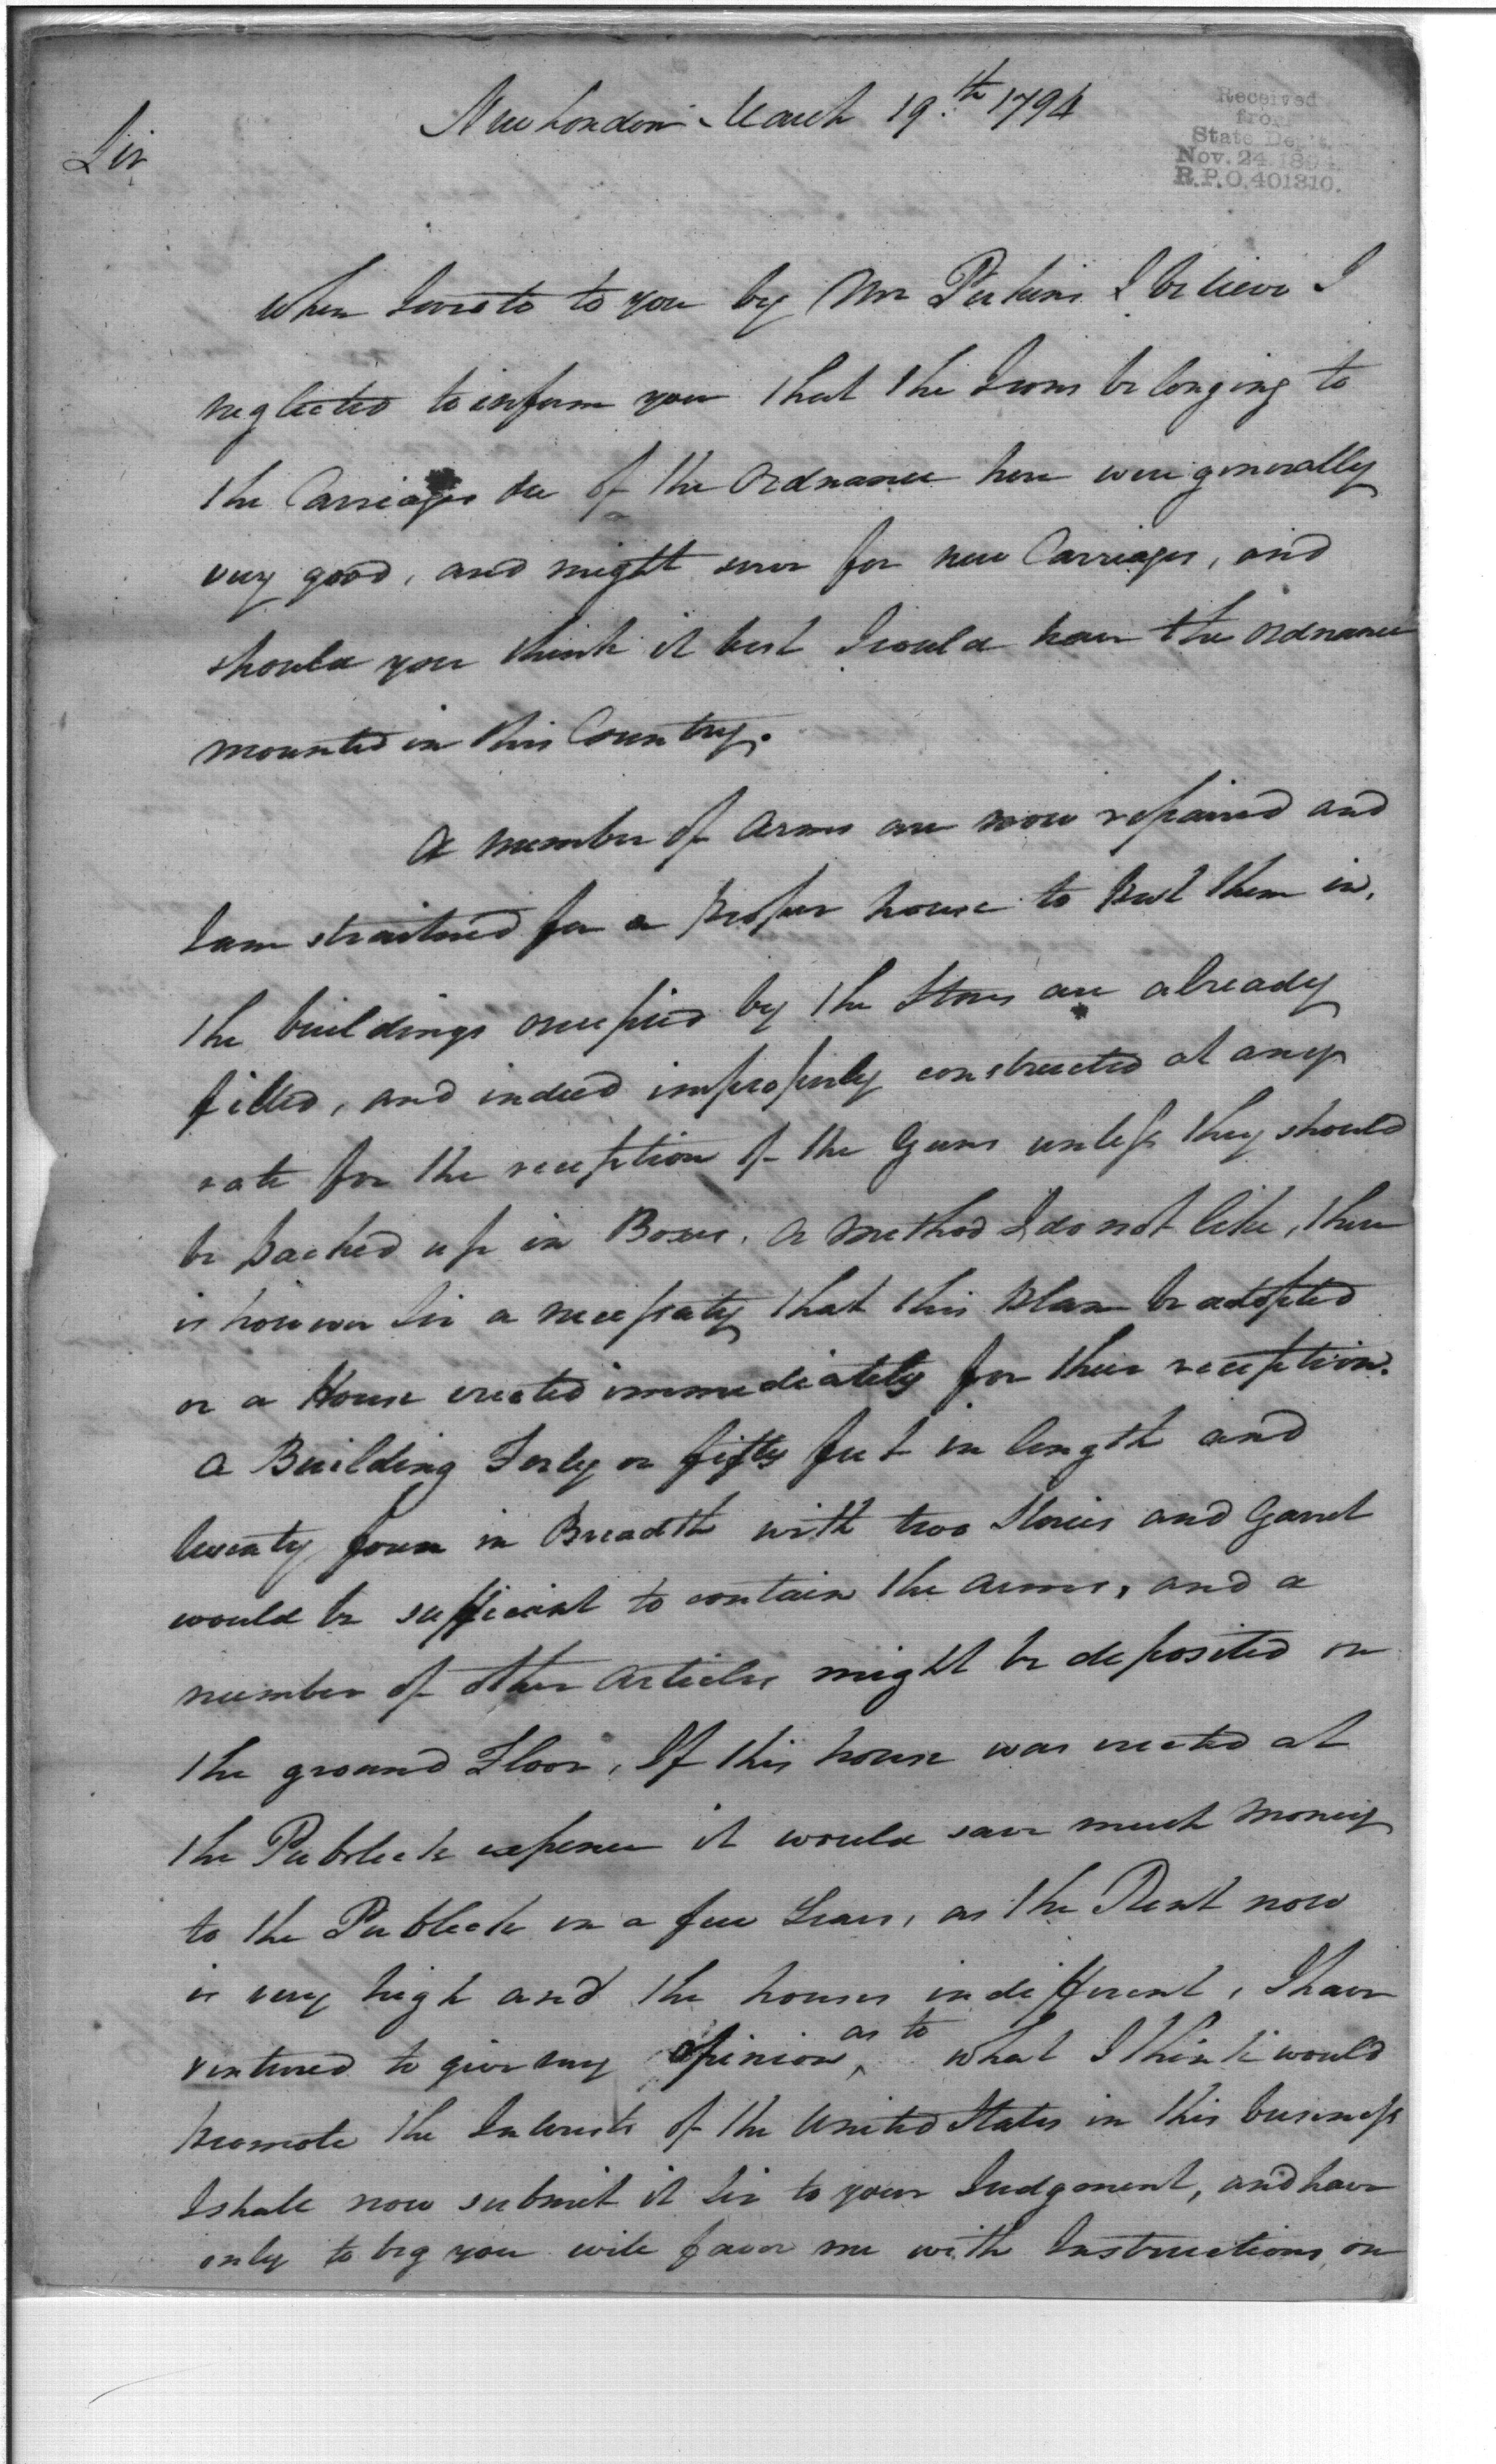 New London March 19th 1794
Received
from
State Dep't.
Nov. 24 1894
R.P.O. 401310.
Sir
When I wrote to you by Mr Perkins I believe I
neglected to inform you that the Irons belonging to
the Carriages &c of the Ordnance here were generally
very good, and might serve for new Carriages, and
should you think it best I could have the Ordnance
mounted in this Country.
A number of Arms are now repaired and
I am straitned for a proper house to put them in,
the buildings occupied by the Stores are already
filled, and indeed improperly constructed at any
rate for the reception of the Guns unless they should
be packed up in Boxes, a method I do not like, there
is however Sir a necessaty that this plan be adopted
or a House erected immediately for their reception.
a Building Forty or fifty feet in length and
twenty four in Breadth with two Stories and Garret
would be sufficient to contain the arms, and a
number of other articles might be deposited on
the ground Floor, If this house was erected at
the Publick expence it would save much Money
to the Publick in a few Years, as the Rent now
is very high and the houses indifferent, I have
ventured to give my opinion as to what I think would
promote the Interests of the United States in this business
I shall now submit it Sir to your Judgment, and have
only to beg you will favor me with Instructions on